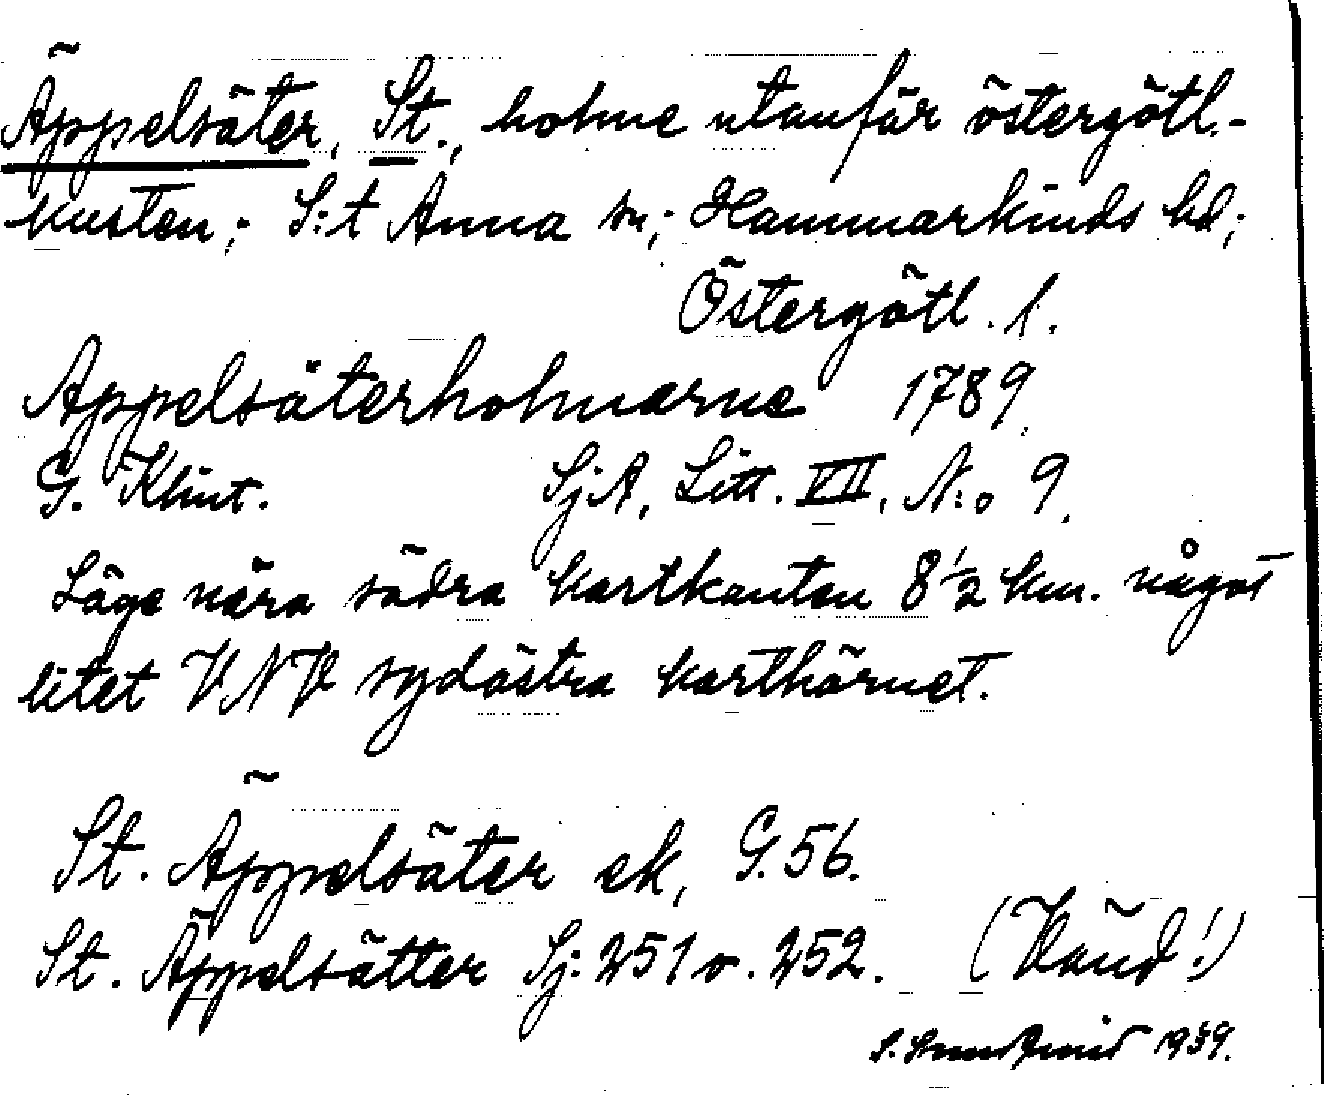 Äppelsäter, St., holme utanför östergötl.-
kusten; S:t Anna sn; Hammarkinds hd;
Östergötl. l.
Appelsäterholmarne 1789.
G. Klint. SjA, Litt. VII, N:o 9.
Läge nära södra kartkanten 8½ km. något
litet VNV sydöstra karthörnet.
St. Äppelsäter ek, G. 56.
St. Äppelsätter Sj: 251 o. 252. (Vänd!)
S. 1939.